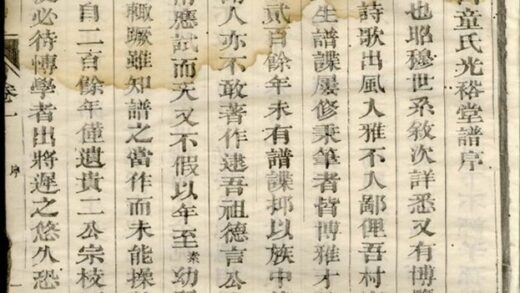 童氏光裕堂譜序
也昭穆世系敘次詳悉又有博
詩歌出風入雅不入鄙俚吾村
生譜諜屢修秉筆者皆博雅才
貳百餘年未有譜諜抑以族中
人亦不敢著作逮吾祖德言公
應試而天又不假以年至素幼
輙蹶雖知譜之當作而未能操
自二百餘年僅遺貴二公宗枝
必待博學者出將遲之悠久恐
卷一
序